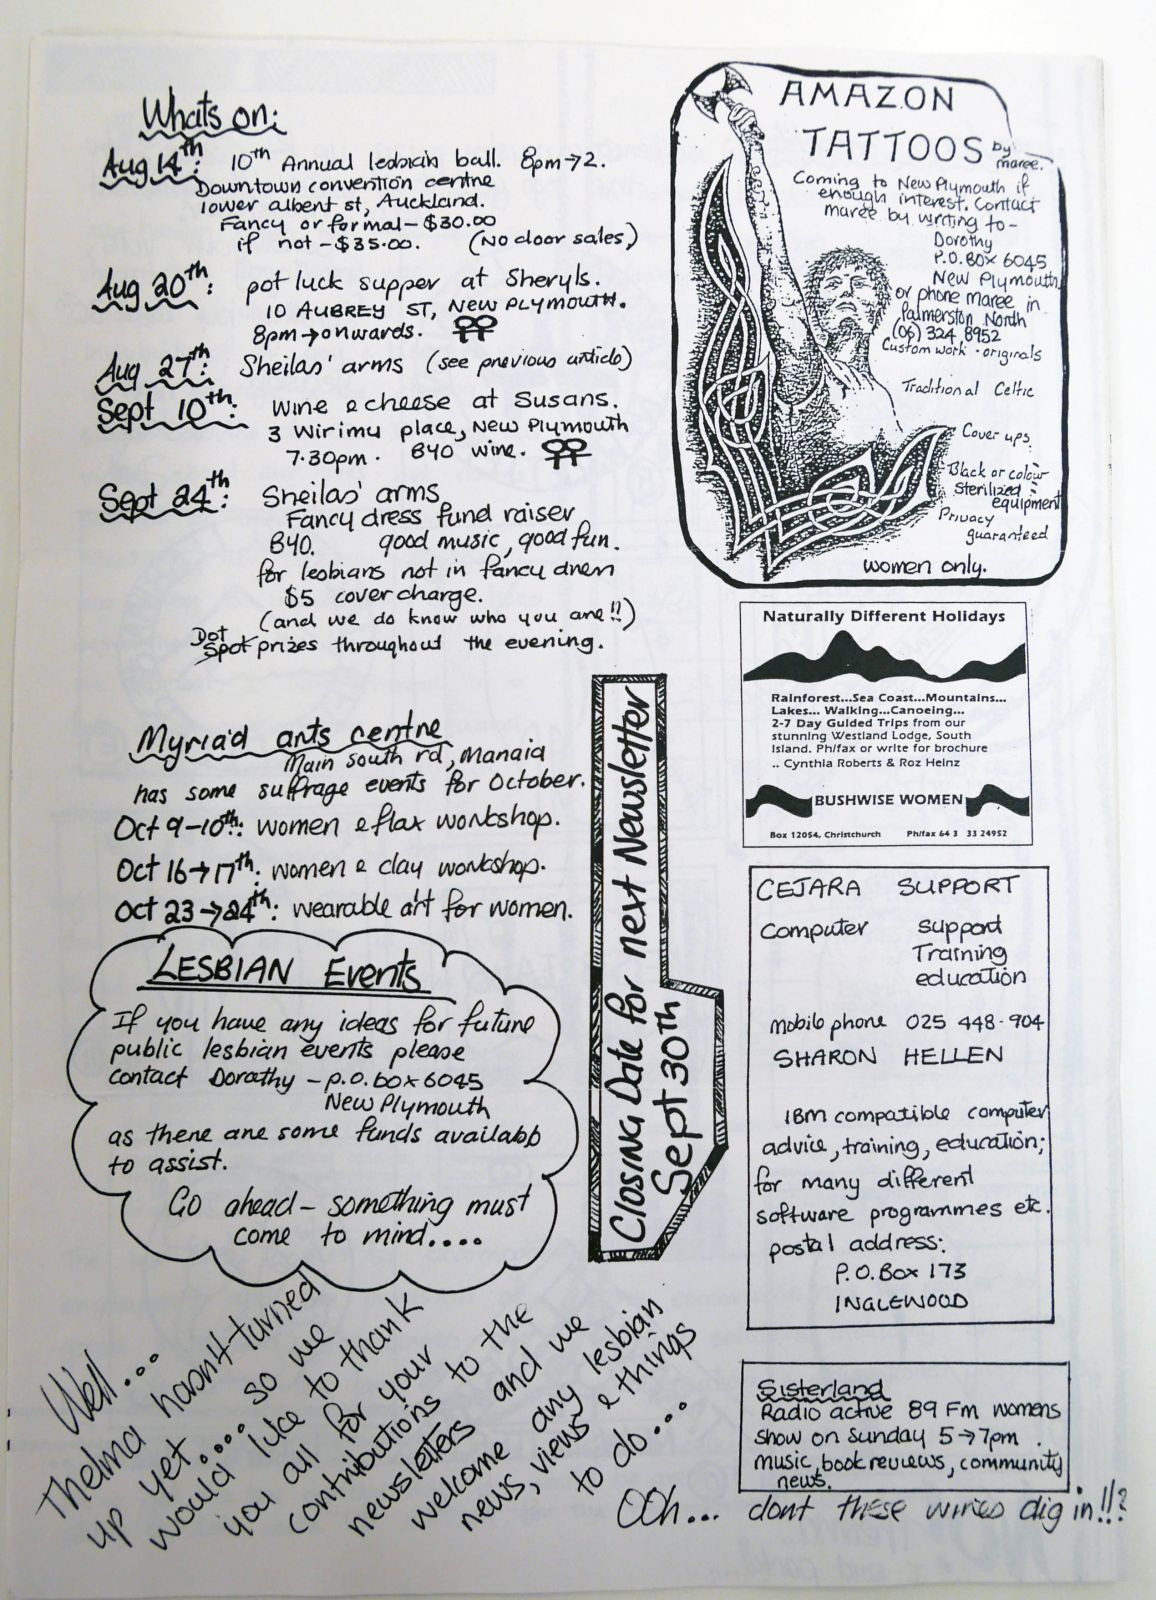 Whats on:
Aug 14th: 10th Annual lesbian ball. 8pm→2.
Downtown convention centre
lower albert st, Auckland.
Fancy or formal - $30.00
if not - $35.00. (No door sales)
Aug 20th: pot luck supper at Sheryls.
10 AUBREY ST, NEW PLYMOUTH.
8pm→onwards.
Aug 27th: Sheilas' arms (see previous article)
Sept 10th: wine & cheese at Susans.
3 Wirimu place, New Plymouth
7.30pm. BYO wine.
Sept 24th: Sheilas' arms
Fancy dress fund raiser
BYO. good music, good fun.
for lesbians not in fancy dress
$5 cover charge.
(and we do know who you are!!)
Dot
Spot prizes throughout the evening.
Myriad arts centre
Main south rd, Manaia
has some suffrage events for October.
Oct 9-10th: women & flax workshop.
Oct 16→17th: women & clay workshop.
Oct 23→24th: wearable art for women.
LESBIAN Events
If you have any ideas for future
public lesbian events please
contact Dorathy - P.O. box 6045
New Plymouth
as there are some funds availabb
to assist.
Go ahead - something must
come to mind....
Closing Date for next Newsletter
Sept 30th
Well...
Thelma hasn't turned
up yet.... so we
would like to thank
you all for your
contributions to the
newsletters and we
welcome any lesbian
news, views & things
to do...
AMAZON
TATTOOS by
maree.
Coming to New Plymouth if
enough interest. Contact
maree by writing to -
Dorothy
P.O. Box 6045
New Plymouth
or phone maree in
Palmerston North
(06) 324 8952
Custom work · originals
Traditional Celtic
Cover ups.
Black or colour
Sterilized
equipment
Privacy
guaranteed
women only.
Naturally Different Holidays
Rainforest...Sea Coast...Mountains...
Lakes... Walking...Canoeing...
2-7 Day Guided Trips from our
stunning Westland Lodge, South
Island. Ph/fax or write for brochure
.. Cynthia Roberts & Roz Heinz
BUSHWISE WOMEN
Box 12054, Christchurch Ph/fax 64 3 33 24952
CEJARA SUPPORT
Computer support
Training
education
mobile phone 025 448-904
SHARON HELLEN
IBM compatible computer
advice, training, education;
for many different
software programmes etc.
postal address:
P.O. Box 173
INGLEWOOD
Sisterland
Radio active 89 Fm womens
show on Sunday 5→7pm
music, book reviews, community
news.
Ooh... dont these wires dig in!!?